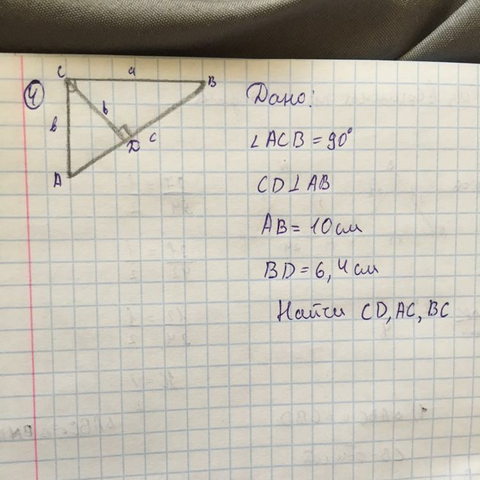 4
C a B
b b
D c
A
Дано:
∠ACB = 90°
CD⊥AB
AB = 10 см
BD = 6,4 см
Найти CD, AC, BC